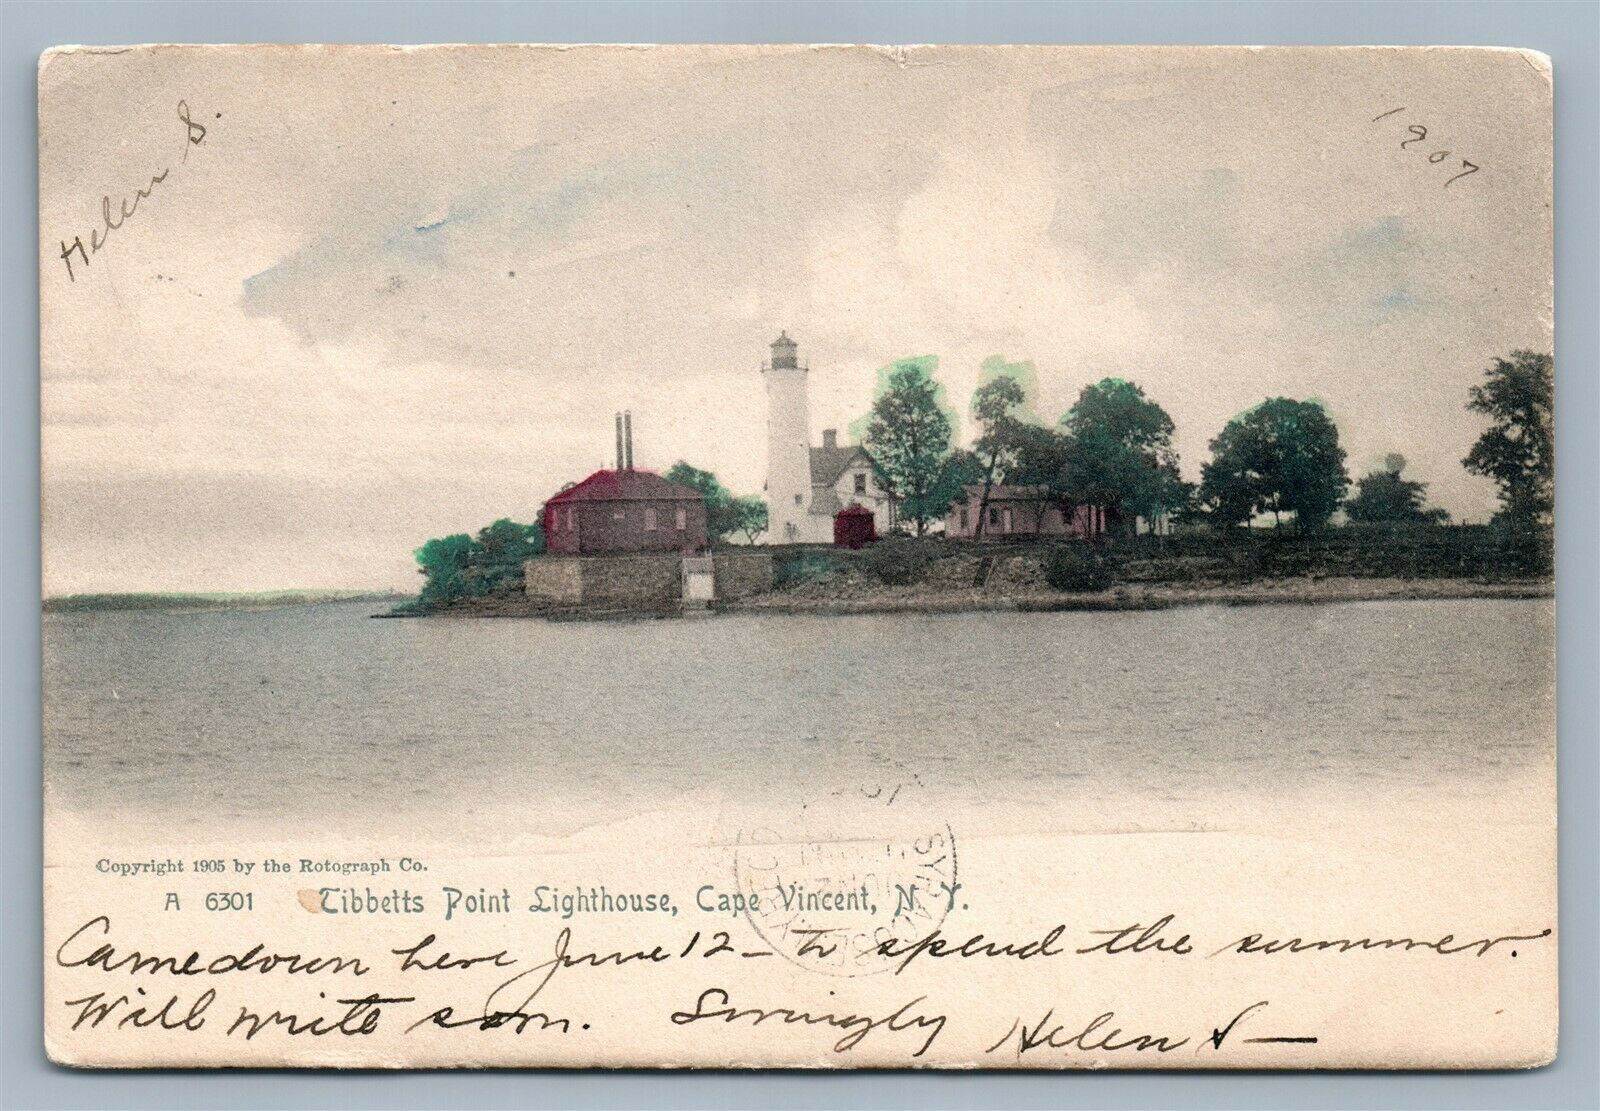 Helen S.
1907
SYRACUSE
JUN
Copyright 1905 by the Rotograph Co.
A 6301 Tibbetts Point Lighthouse, Cape Vincent, N. Y.
Came down here June 12 - to spend the summer.
Will write soon. Lovingly Helen S —